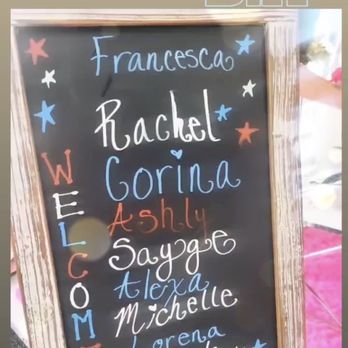 Francesca
Rachel
Corina
Ashly
Sayge
Alexa
Michelle
Lorena
WELCOM